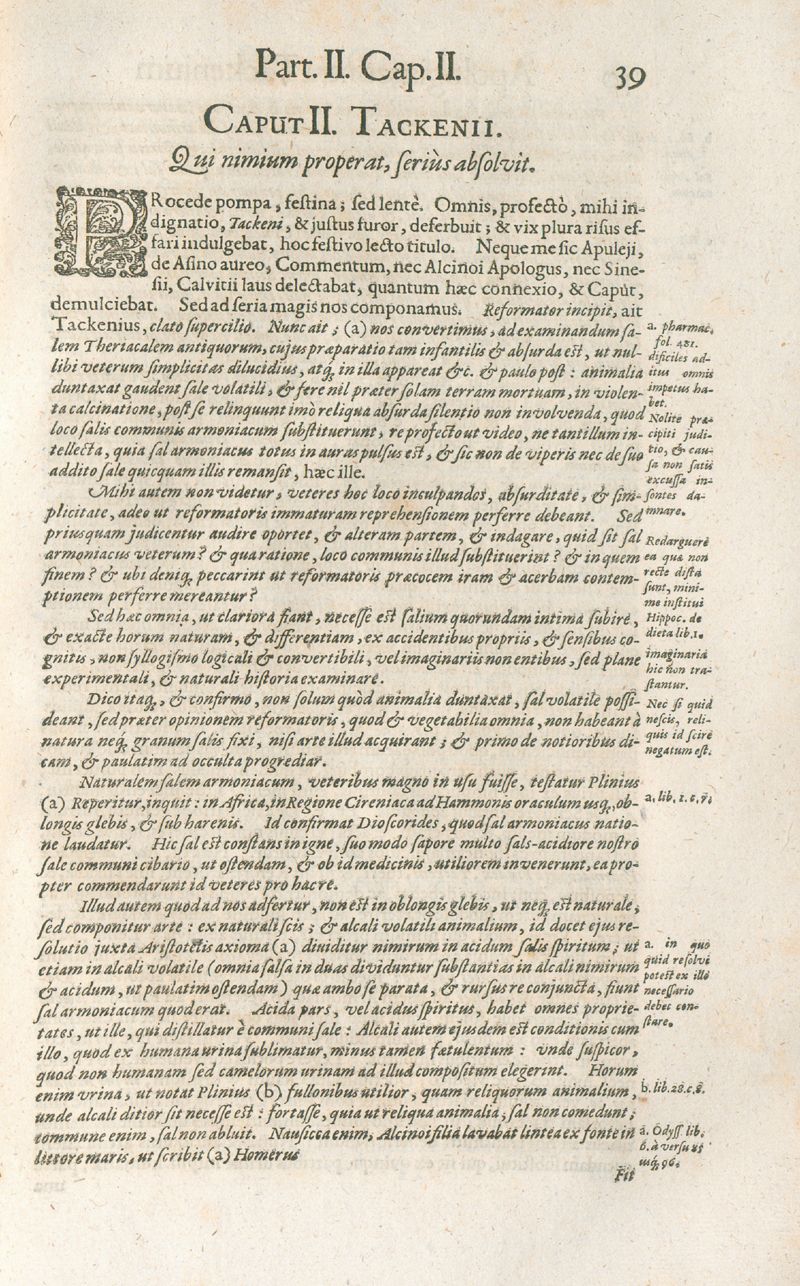 Part. II. Cap. II.
39
CAPUT II. TACKENII.
Qui nimium properat, ſeriùs abſolvit.
PRocede pompa, feſtina; ſed lentè. Omnis, profectò, mihi in-
dignatio, Tackeni, & juſtus furor, deferbuit; & vix plura riſus ef-
fari indulgebat, hoc feſtivo lecto titulo. Neque me ſic Apuleji,
de Aſino aureo, Commentum, nec Alcinoi Apologus, nec Sine-
ſii, Calvitii laus delectabat, quantum hæc connexio, & Caput,
demulciebat. Sed ad ſeria magis nos componamus. Reformator incipit, ait
Tackenius, elato ſupercilio. Nunc ait; (a) nos convertimus, ad examinandum ſa-
a. pharmac.
fol. 481.
lem Theriacalem antiquorum, cujus præparatio tam infantilis & abſurda eſt, ut nul-
difficiles ad-
libi veterum ſimplicitas dilucidius, atq; in illa appareat &c. & paulo poſt: animalia
itus omnis
duntaxat gaudent ſale volatili, & fere nil præter ſolam terram mortuam, in violen-
impetus ha-
bet.
ta calcinatione, poſt ſe relinquunt imò reliqua abſurda ſilentio non involvenda, quod
Nolite præ-
loco ſalis communis armoniacum ſubſtituerunt, re profecto ut video, ne tantillum in-
cipiti judi-
tellecta, quia ſal armoniacus totus in auras pulſus eſt, & ſic non de viperis nec de ſuo
tio, & cau-
ſa non ſatis
addito ſale quicquam illis remanſit, hæc ille.
excuſſa in-
Mihi autem non videtur, veteres hoc loco inculpandos, abſurditate, & ſim-
ſontes da-
plicitate, adeo ut reformatoris immaturam reprehenſionem perferre debeant. Sed
mnare.
priusquam judicentur audire oportet, & alteram partem, & indagare, quid ſit ſal
Redarguere
armoniacus veterum? & qua ratione, loco communis illud ſubſtituerint? & in quem
ea quæ non
finem? & ubi deniq; peccarint ut reformatoris præcocem iram & acerbam contem-
recte dicta
ſunt, mini-
ptionem perferre mereantur?
me inſtitui
Sed hæc omnia, ut clariora fiant, neceſſe eſt ſalium quorundam intima ſubire,
Hippoc. de
& exacte horum naturam, & differentiam, ex accidentibus propriis, & ſenſibus co-
dieta lib. 1.
gnitis, non ſyllogiſmo logicali & convertibili, vel imaginariis non entibus, ſed plane
imaginaria
hic non tra-
experimentali, & naturali hiſtoria examinare.
ſtantur.
Dico itaq;, & confirmo, non ſolum quòd animalia duntaxat, ſal volatile poſſi-
Nec ſi quid
deant, ſed præter opinionem reformatoris, quod & vegetabilia omnia, non habeant à
neſcis, reli-
natura neq; granum ſalis fixi, niſi arte illud acquirant; & primo de notioribus di-
quis id ſcire
negatum eſt.
cam, & paulatim ad occulta progrediar.
Naturalem ſalem armoniacum, veteribus magno in uſu fuiſſe, teſtatur Plinius
(a) Reperitur, inquit: in Africa, in Regione Cireniaca ad Hammonis oraculum usq;, ob-
longis glebis, & ſub harenis. Id confirmat Dioſcorides, quod ſal armoniacus natio-
ne laudatur. Hic ſal eſt conſtans in igne, ſuo modo ſapore multo ſals-acidiore noſtro
ſale communi cibario, ut oſtendam, & ob id medicinis, utiliorem invenerunt, ea pro-
pter commendarunt id veteres pro hac re.
Illud autem quod ad nos adfertur, non eſt in oblongis glebis, ut neq; eſt naturale,
ſed componitur arte: ex naturaliſcis; & alcali volatili animalium, id docet ejus re-
ſolutio juxta Ariſtotelis axioma (a) dividitur nimirum in acidum ſalis ſpiritum; ut
a. in quo
etiam in alcali volatile (omnia ſalſa in duas dividuntur ſubſtantias in alcali nimirum
quid reſolvi
poteſt ex illo
& acidum, ut paulatim oſtendam) quæ ambo ſe parata, & rurſus re conjuncta, fiunt
neceſſario
ſal armoniacum quod erat. Acida pars, vel acidus ſpiritus, habet omnes proprie-
debet con-
tates, ut ille, qui diſtillatur è communi ſale: Alcali autem ejusdem eſt conditionis cum
ſtare.
illo, quod ex humana urina ſublimatur, minus tamen fœtulentum: vnde ſuſpicor,
quod non humanam ſed camelorum urinam ad illud compoſitum elegerint. Horum
enim vrina, ut notat Plinius (b) fullonibus utilior, quam reliquorum animalium,
b. lib. 28. c. 8.
unde alcali ditior ſit neceſſe eſt: fortaſſe, quia ut reliqua animalia, ſal non comedunt;
commune enim, ſal non abluit. Nauſicea enim, Alcinoi filia lavabat lintea ex fonte in
a. Odyſſ. lib.
littore maris, ut ſcribit (a) Homerus
Fit